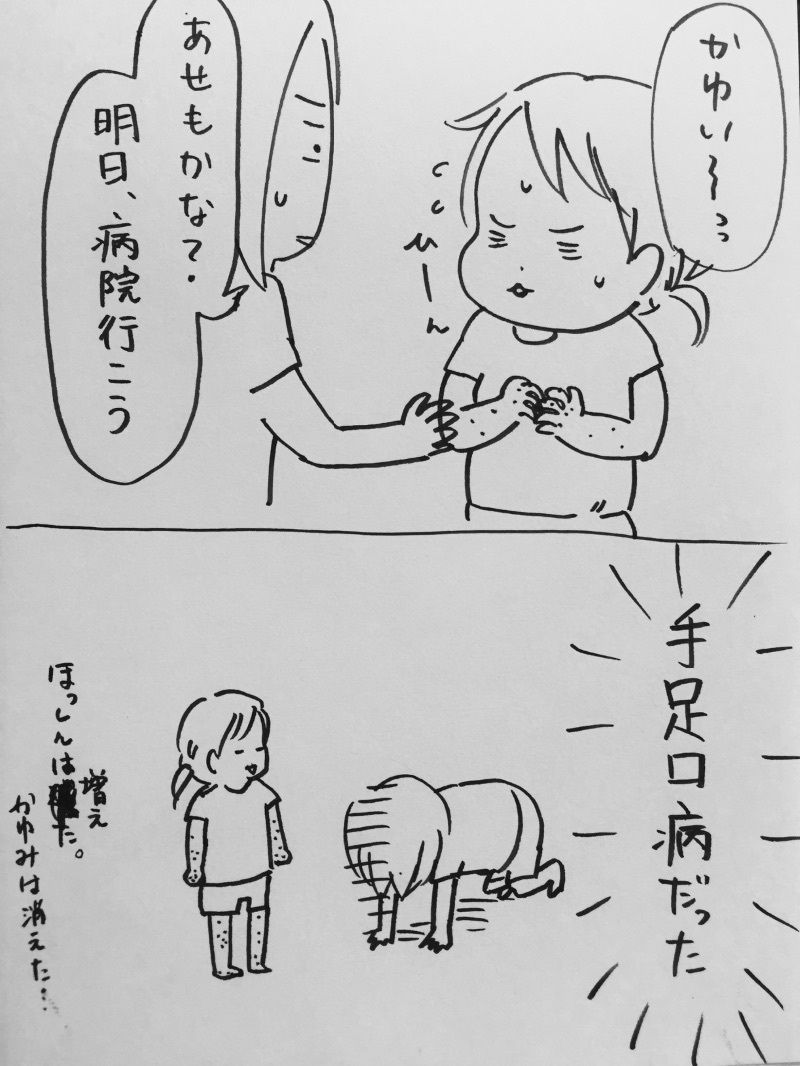 かゆい〜っ
ひーん
あせもかな?
明日、病院行こう
手足口病だった
ほっしんは増えた。
かゆみは消えた…